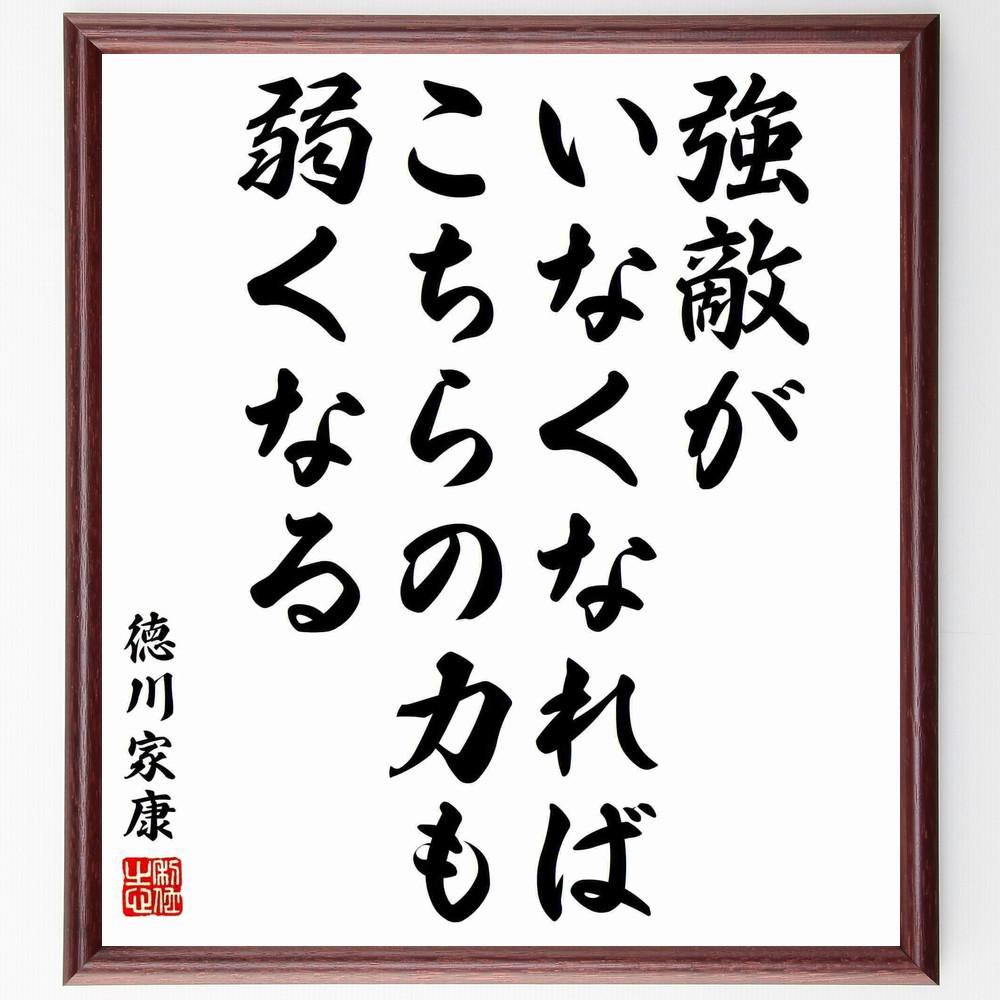 強敵が
いなくなれば
こちらの力も
弱くなる
徳川家康